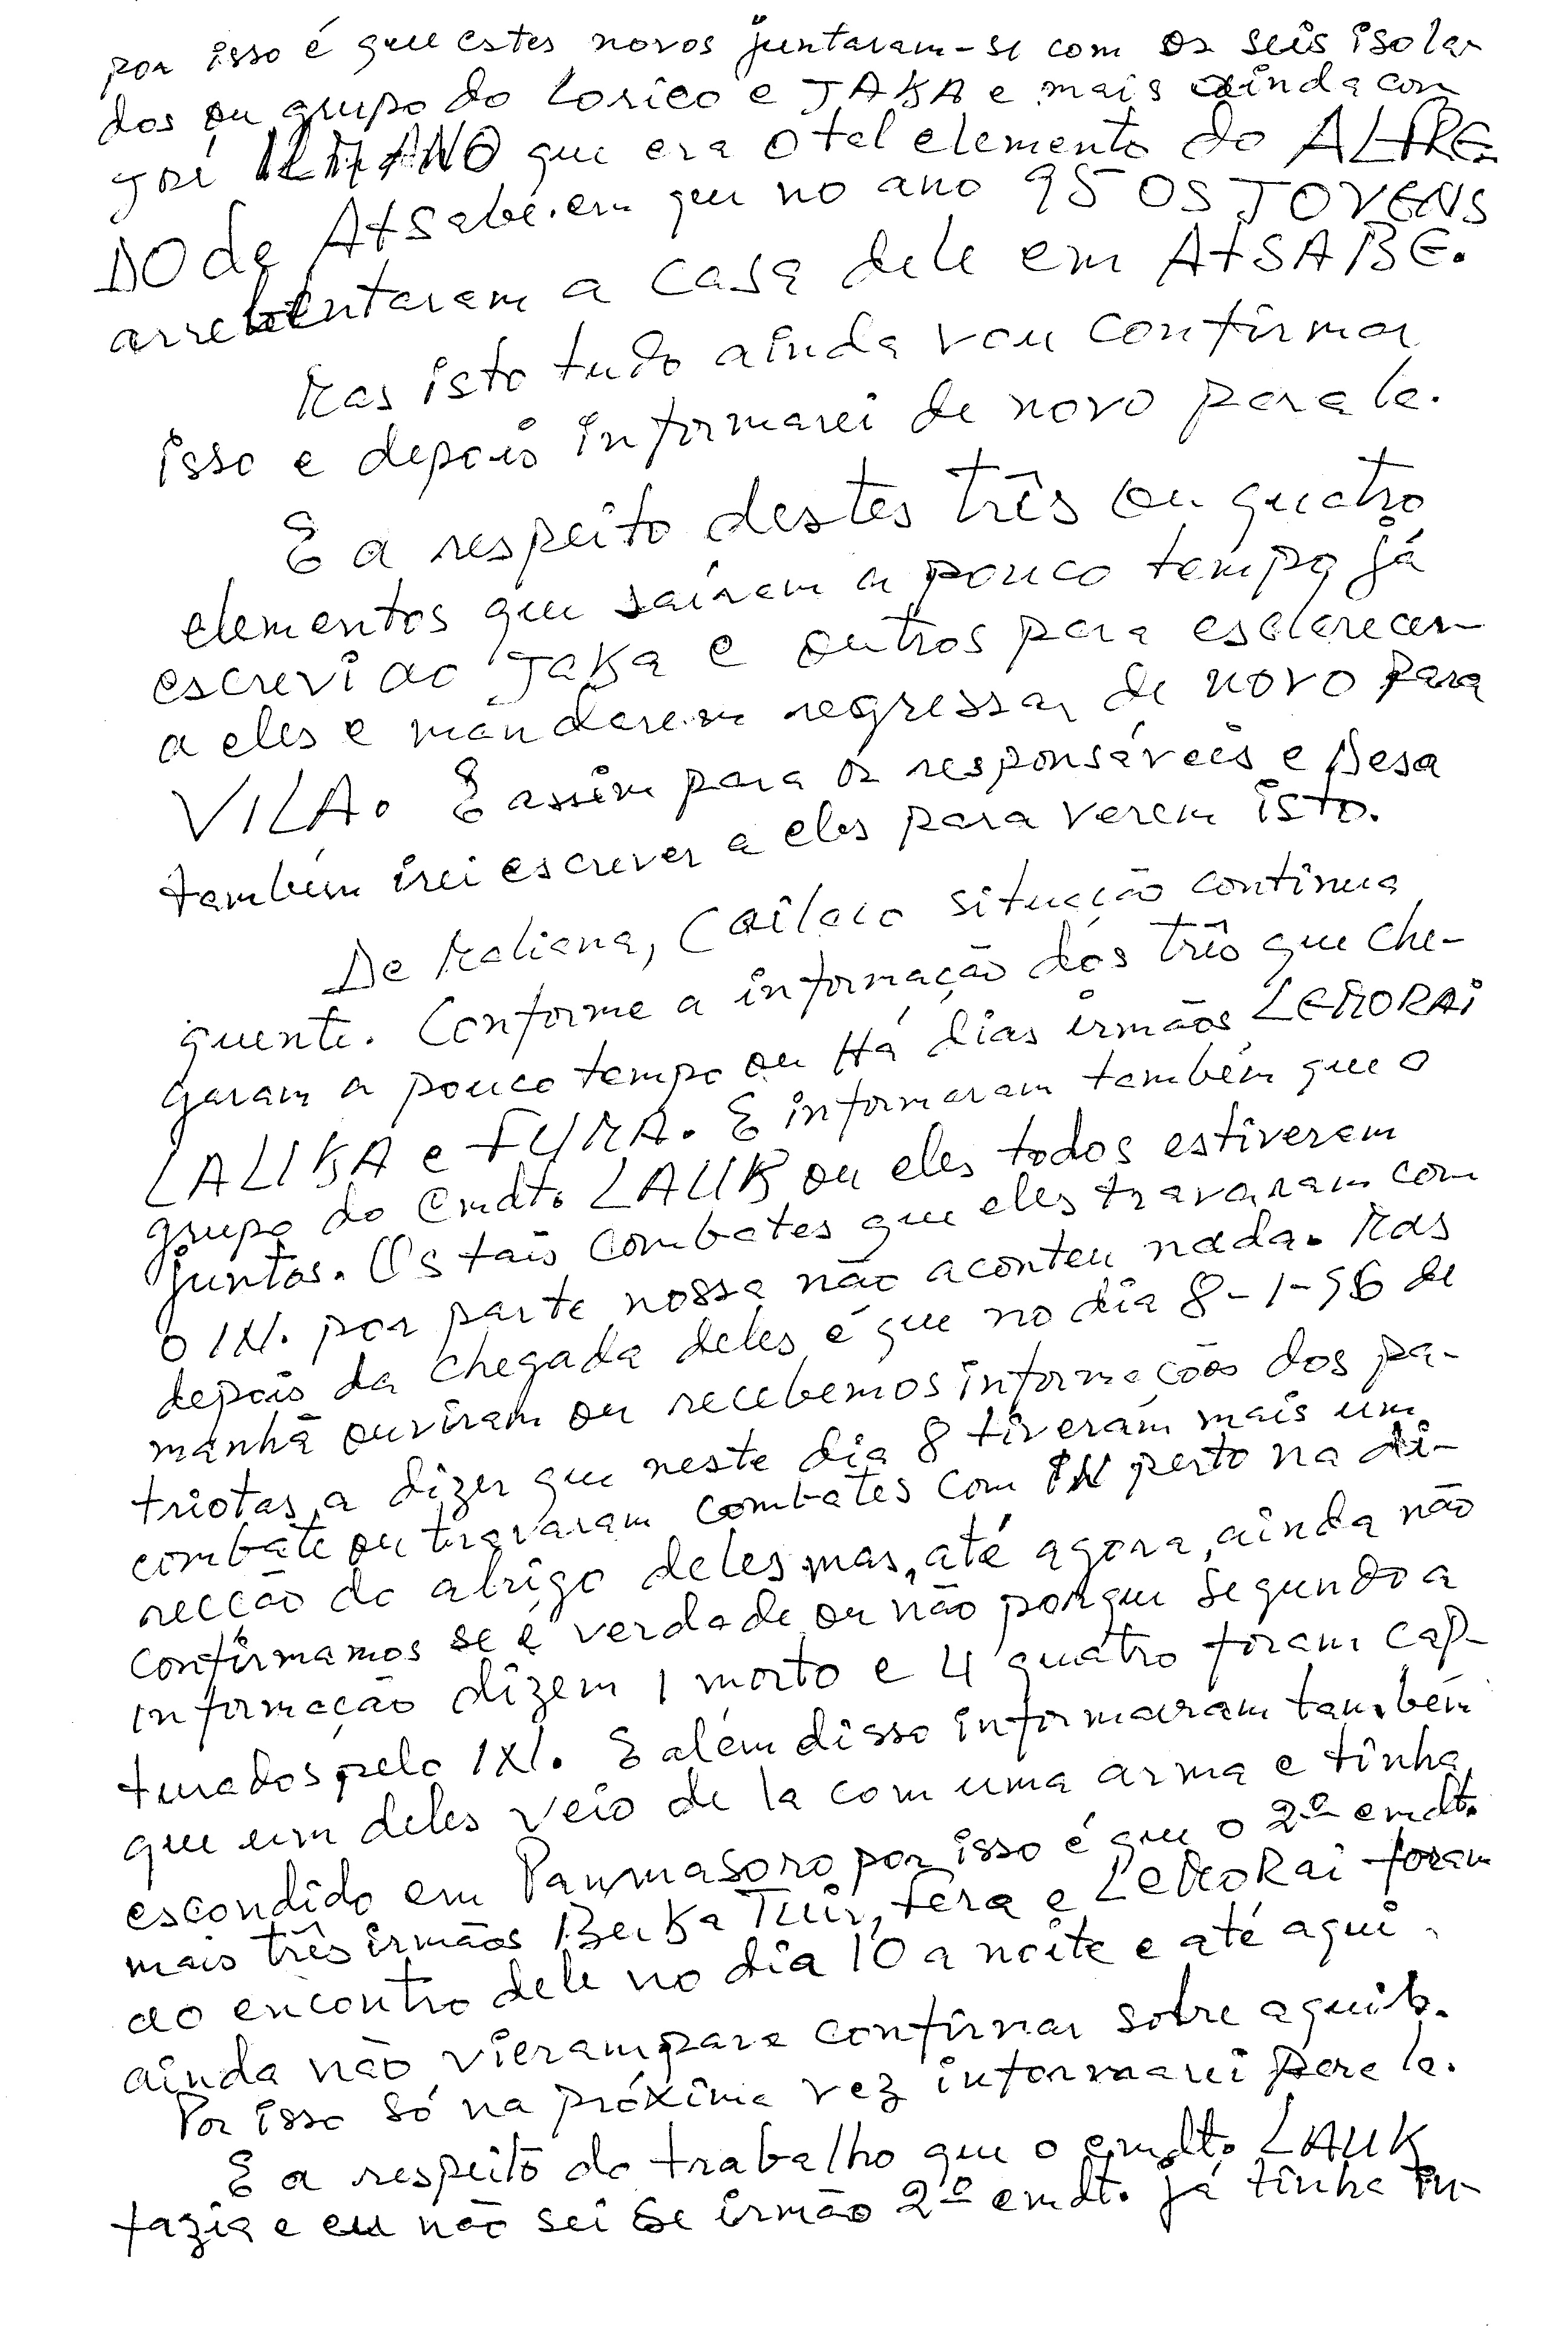 por isso é que estes novos juntaram-se com os seis isola-
dos ou grupo do Lorico e JAKA e mais ainda com
José ILMANO que era o tal elemento do ALFRE-
DO de Atsabe. em que no ano 95 OS JOVENS
arrebentaram a casa dele em ATSABE.
Mas isto tudo ainda vou confirmar
isso e depois informarei de novo para la.
E a respeito destes três ou quatro
elementos que saíram a pouco tempo já
escrevi ao JAKA e outros para esclarecem
a eles e mandarem regressar de novo para
VILA. E assim para os responsáveis e Desa
também irei escrever a eles para verem isto.
De Maliana, Cailaco situação continua
quente. Conforme a informação dos três que che-
garam a pouco tempo ou Há dias irmãos LEMORAI
LALIKA e FUMA. E informaram também que o
grupo do Cmdt. LAUK ou eles todos estiveram
juntos. Os tais combates que eles travaram com
o IN. por parte nossa não aconteu nada. Mas
depois da chegada deles é que no dia 8-1-96 de
manhã ouviram ou recebemos informações dos pa-
triotas a dizer que neste dia 8 tiveram mais um
combate ou travaram combates com IN perto na di-
recção do abrigo deles mas, até agora, ainda não
confirmamos se é verdade ou não porque segundo a
informação dizem 1 morto e 4 quatro foram cap-
turados pelo IN. E além disso informaram também
que um deles veio de la com uma arma e tinha
escondido em Panmasoro por isso é que o 2º cmdt.
mais três irmãos Berka Tuir, Fera e LEMORAi foram
ao encontro dele no dia 10 a noite e até aqui
ainda não vieram para confirmar sobre aquilo.
Por isso só na próxima vez informarei para la.
E a respeito do trabalho que o cmdt. LAUK
fazia e eu não sei se irmão 2º cmdt. já tinha in-